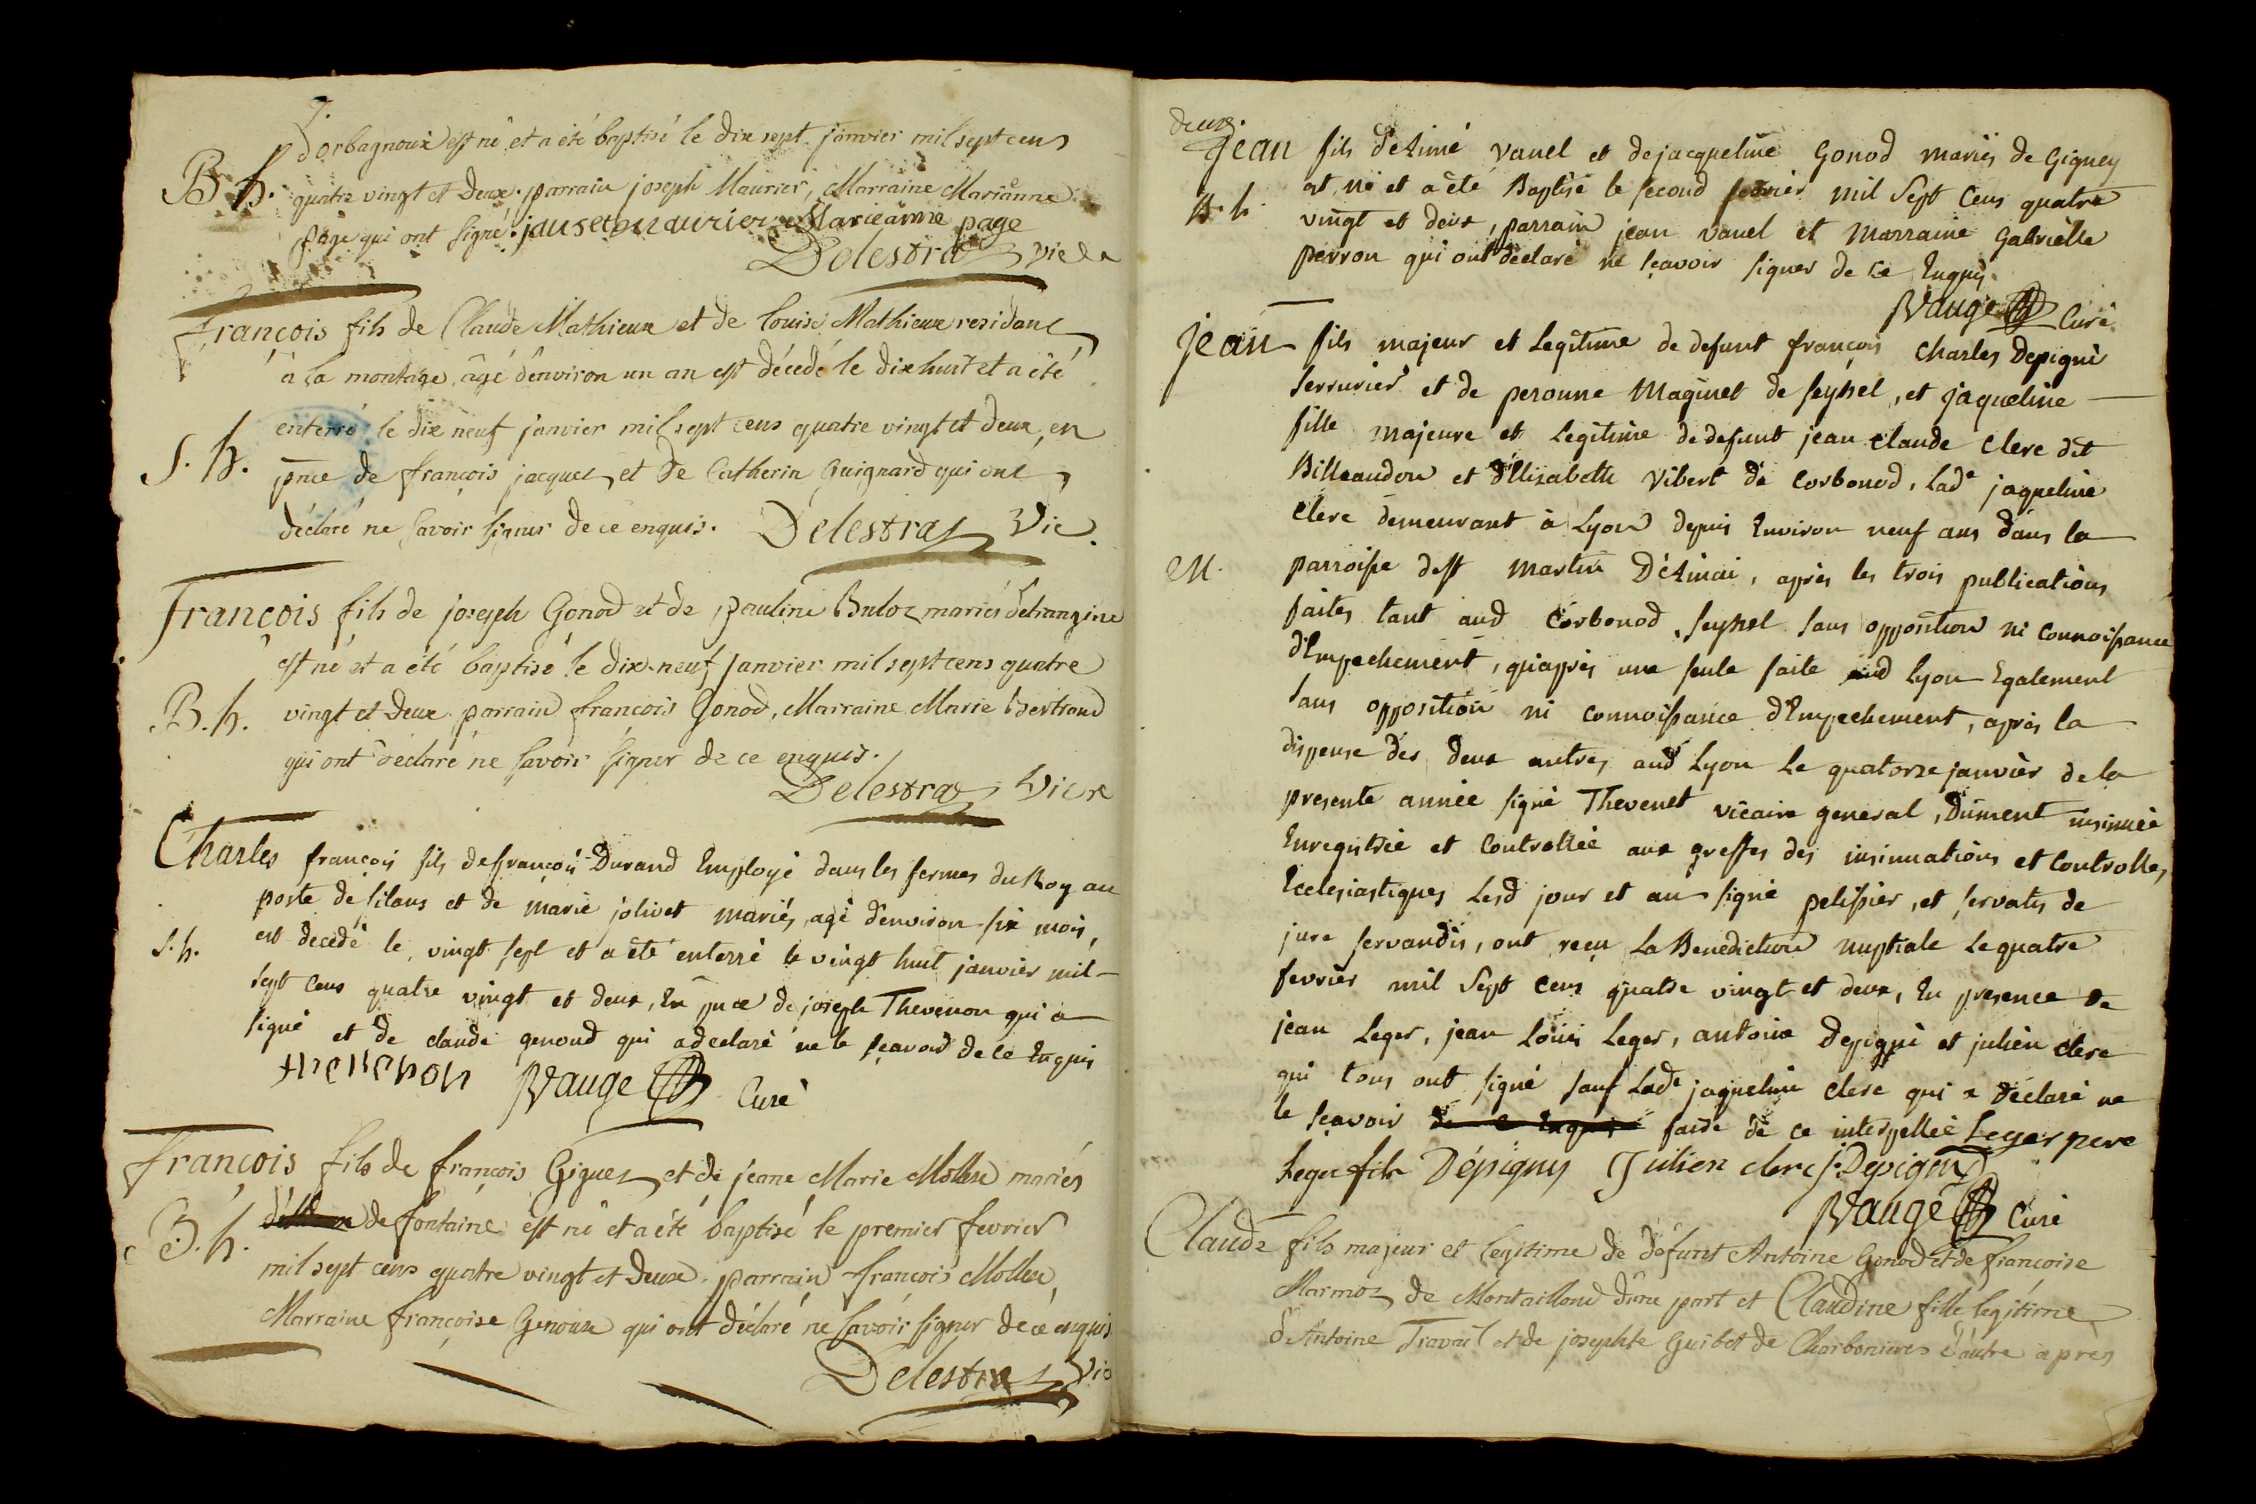 Dorbagnoux est né et a été baptisé le dix sept janvier mil sept cens
B. h. quatre vingt et deux. parrain joseph Maurier, Marraine Marianne
page qui ont signé. Marieanne page
Delestraz vic
François fils de Claude Mathieux et de Louise Mathieux residant
à la montagne, âgé d'environ un an est décedé le dix huit et a été
enterré le dix neuf janvier mil sept cens quatre vingt et deux, en
S. h. pnce de françois jacquet et de Catherin Guignard qui ont
déclaré ne savoir signer de ce enquis. Delestraz Vic.
François fils de joseph Gonod et de pauline Buloz mariés d'etranzine
est né et a été baptisé le dix-neuf janvier mil sept cens quatre
B. h. vingt et deux parrain françois Gonod, Marraine Marie Bertrand
qui ont déclaré ne savoir signer de ce enquis.
Delestraz Vicre
Charles françois fils de françois Durand Employé dans les fermes du Roy au
poste de silans et de marie jolivet mariés, agé d'environ six mois,
S. h. est decedé le vingt sept et a été enterré le vingt huit janvier mil
sept cens quatre vingt et deux, En pnce de joseph Thevenon qui a
signé et de claude genoud qui a declaré ne le sçavoir de ce Enquis
thevenon Vauge Curé
François fils de françois Giguet et de jeane Marie Mollex mariés
B. h. de fontaine est né et a été baptisé le premier fevrier
mil sept cens quatre vingt et deux. parrain françois Mollex,
Marraine françoise Genoux qui ont déclaré ne savoir signer de ce enquis
Delestraz Vic
deux.
Jean fils d'Aimé vanel et de jacqueline Gonod mariés de Gignez
B. h. est né et a été Baptisé le second fevrier mil Sept Cens quatre
vingt et deux, parrain jean vanel et Marraine Gabrielle
perron qui ont déclaré ne sçavoir signer de ce Enquis.
Vauge Curé
Jean fils majeur et Legitime de defunt françois Charles Depigni
serrurier et de peronne Maginet de seyssel, et jaqueline
fille majeure et Legitime de defunt jean claude Clerc dit
Billeaudon et d'Elisabeth Vibert de Corbonod, Lade jaqueline
Clerc demeurant à Lyon depuis Environ neuf ans dans la
M. parroisse de st Martin D'Ainai, après les trois publications
faites tant aud Corbonod, seyssel sans opposition ni Connoissance
d'Empechement, qu'après une seule faite aud Lyon Egalement
sans opposition ni connoissance d'Empechement, après la
dispense des deux autres aud Lyon Le quatorze janvier de la
presente année signé Thevenet vicaire general, Dument insinuée
Enregistrée et Controllée aux greffes des insinuations et Controlles
Ecclesiastiques Lesd jour et an signé pelissier, et servatis de
jure servandis, ont reçu La Benediction nuptiale Le quatre
fevrier mil Sept Cens quatre vingt et deux, En presence de
jean Leger, jean Louis Leger, antoine Depigni et julien clerc
qui tous ont signé sauf Lade jaqueline clerc qui a Déclaré ne
le sçavoir de ce Enquis faire de ce interpellée Leger pere
Leger fils Dépigny Julien clerc J. Depigny
Vauge Curé
Claude fils majeur et legitime de défunt Antoine Gonod et de françoise
Marmoz de Montailloud d'une part et Claudine fille legitime
d'Antoine Travail et de josephte Guibet de Charbonieres d'autre après